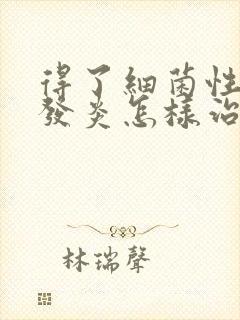 得了細菌性
發炎怎樣治
林瑞聲